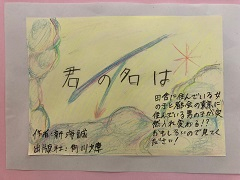 君の名は
田舎に住んでいる女
の子と都会の東京に
住んでいる男の子が突
然入れ変わる!?
おもしろいので見てく
ださい!
作者:新海誠
出版社:角川文庫